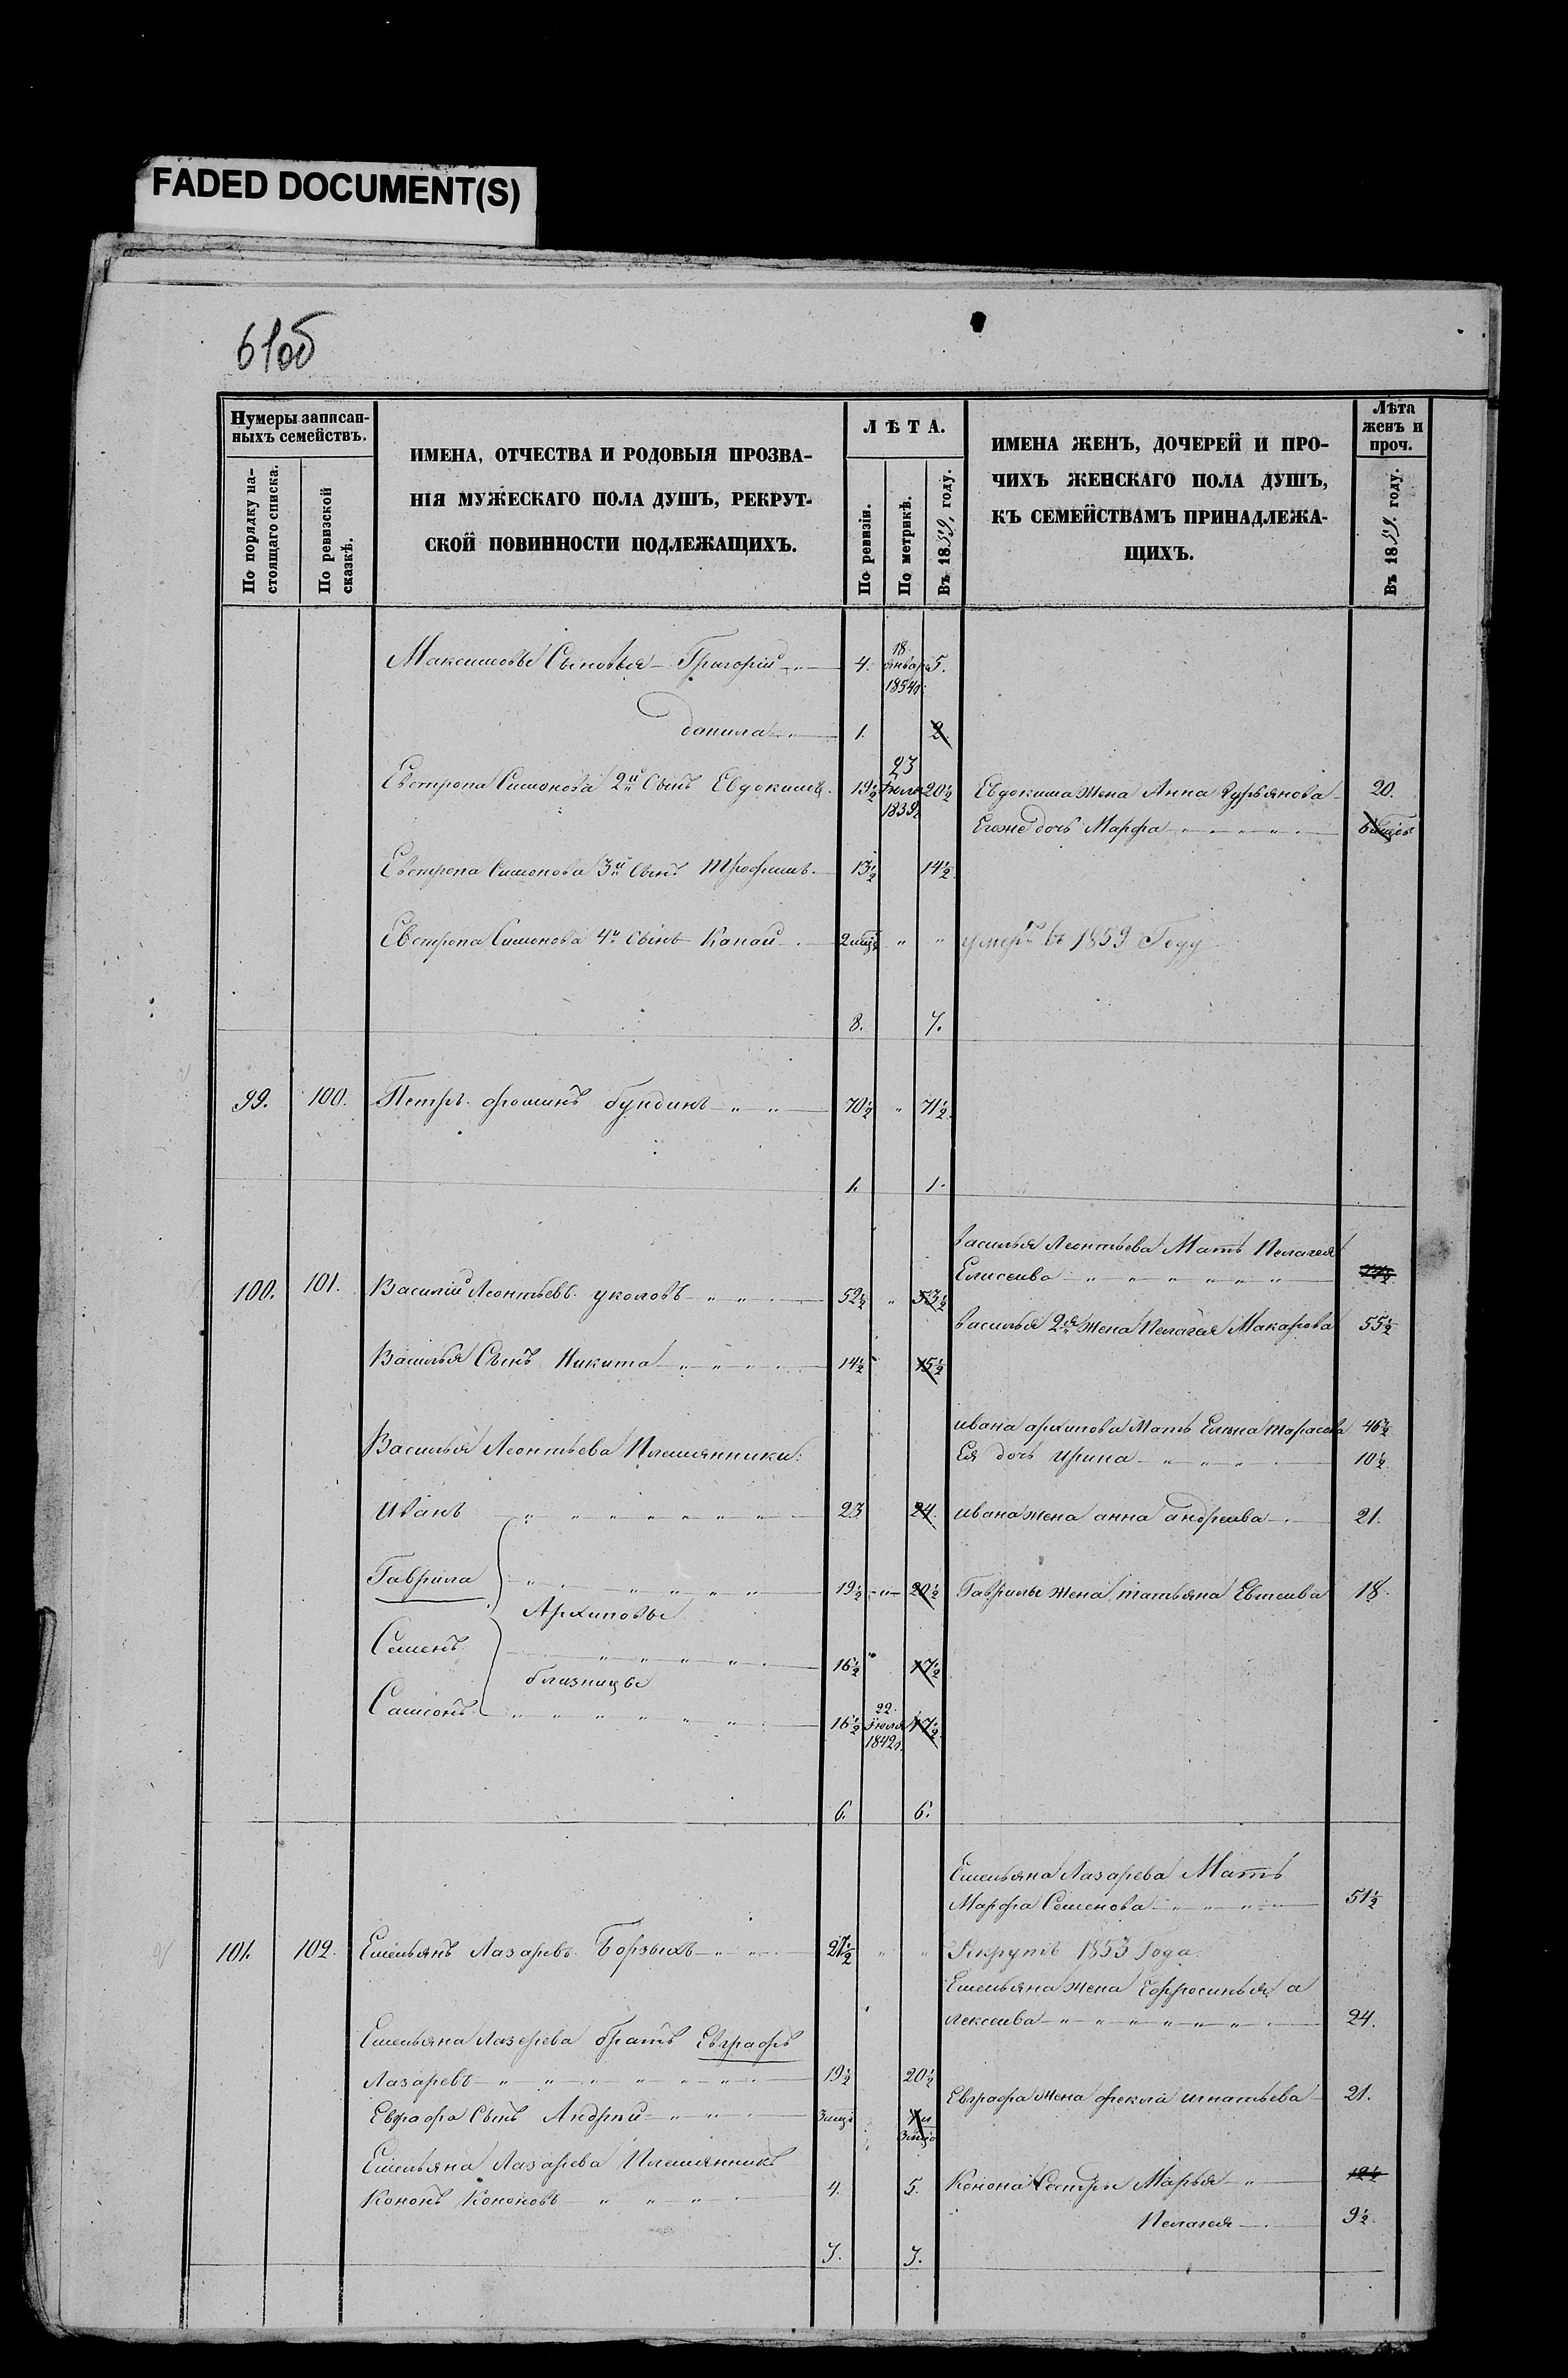 FADED DOCUMENT(S)
61об
Нумеры записан-
ныхъ семействъ.
По порядку на-
стоящаго списка.
По ревизской
сказкѣ.
ИМЕНА, ОТЧЕСТВА И РОДОВЫЯ ПРОЗВА-
НІЯ МУЖЕСКАГО ПОЛА ДУШЪ, РЕКРУТ-
СКОЙ ПОВИННОСТИ ПОДЛЕЖАЩИХЪ.
ЛѢТА.
По ревизіи.
По метрикѣ.
Въ 1859, году.
ИМЕНА ЖЕНЪ, ДОЧЕРЕЙ И ПРО-
ЧИХЪ ЖЕНСКАГО ПОЛА ДУШЪ,
КЪ СЕМЕЙСТВАМЪ ПРИНАДЛЕЖА-
ЩИХЪ.
Лѣта
женъ и
проч.
Въ 1859, году.
Максимовы Сыновья - Григорій 4. 18 Января 1854г. 5.
Данила 1. 2.
Евстропа Симонова 2й Сынъ Евдокимъ. 19½ 23 Іюля 1839г 20½ Евдокима Жена Анна Гурьянова 20.
Егоже дочь Марфа 6 мцов
Евстропа Симонова 3й Сынъ Трофимъ. 13½ 14½
Евстропа Симонова 4й Сынъ Канай 2 мцов " " умеръ въ 1859 Году
8. 7.
99. 100. Петръ Фоминъ бундинъ " " 70½ " 71½
1. 1.
Василья Леонтьева Мать Пелагея
Елисеева
100. 101. Василій Леонтьевъ уколовъ 52½ " 53½
Василья 2я Жена Пелагея Макарова 55½
Василья Сынъ Никита 14½ 15½
Ивана архипова Мать Елена тарасова 46½
Василья Леонтьева Племянники:
Ея дочь Ирина 10½
Иванъ 23 24. Ивана жена анна андреева 21.
Гаврила 19½ " 20½ Гаврилы жена татьяна Евтеева 18.
Архиповы
Семенъ 16½ 17½
близнецы
Самсонъ 16½ 22 Іюля 1842г. 17½
6. 6.
Емельяна Лазарева Мать
Марфа Семенова 51½
101. 102. Емельянъ Лазаревъ Борзыхъ 27½ " " Рекрутъ 1853 Года.
Емельяна жена Ефросинья а
лексеева 24.
Емельяна Лазерева братъ Евграфъ
Лазаревъ 19½ 20½
Евграфа жена фекла игнатьева 21.
Евграфа Сынъ Андрей 3 мцо 1 и 3 мцо
Емельяна Лазарева Племянникъ
Кононъ Кононовъ 4. 5. Конона Сестры Марья 12½
Пелагея 9½
3. 3.